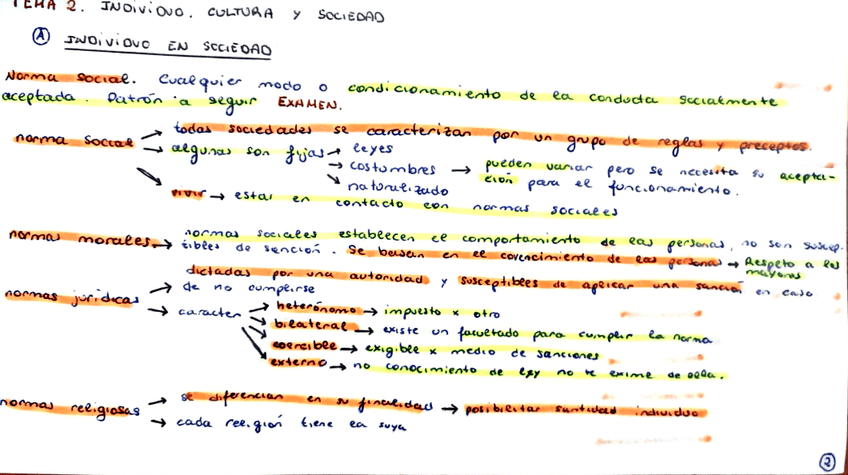 TEMA 2. INDIVIDUO, CULTURA Y SOCIEDAD
A INDIVIDUO EN SOCIEDAD
Norma Social. Cualquier modo o condicionamiento de la conducta socialmente
aceptada. Patrón a seguir EXAMEN.
norma social → todas sociedades se caracterizan por un grupo de reglas y preceptos.
→ algunas son fijas → leyes
→ costumbres → pueden variar pero se necesita su acepta-
ción para el funcionamiento.
→ naturalizado
→ vivir → estar en contacto con normas sociales
normas morales → normas sociales establecen el comportamiento de las personas, no son suscep-
tibles de sanción. Se basan en el convencimiento de las personas → Respeto a los
mayores
normas jurídicas → dictadas por una autoridad y susceptibles de aplicar una sanción en caso
de no cumplirse
→ caracter → heterónomo → impuesto x otro
→ bilateral → existe un facultado para cumplir la norma
→ coercible → exigible x medio de sanciones
→ externo → no conocimiento de ley no te exime de ella.
normas religiosas → se diferencian en su finalidad → posibilitar santidad individuo
→ cada religión tiene la suya
2